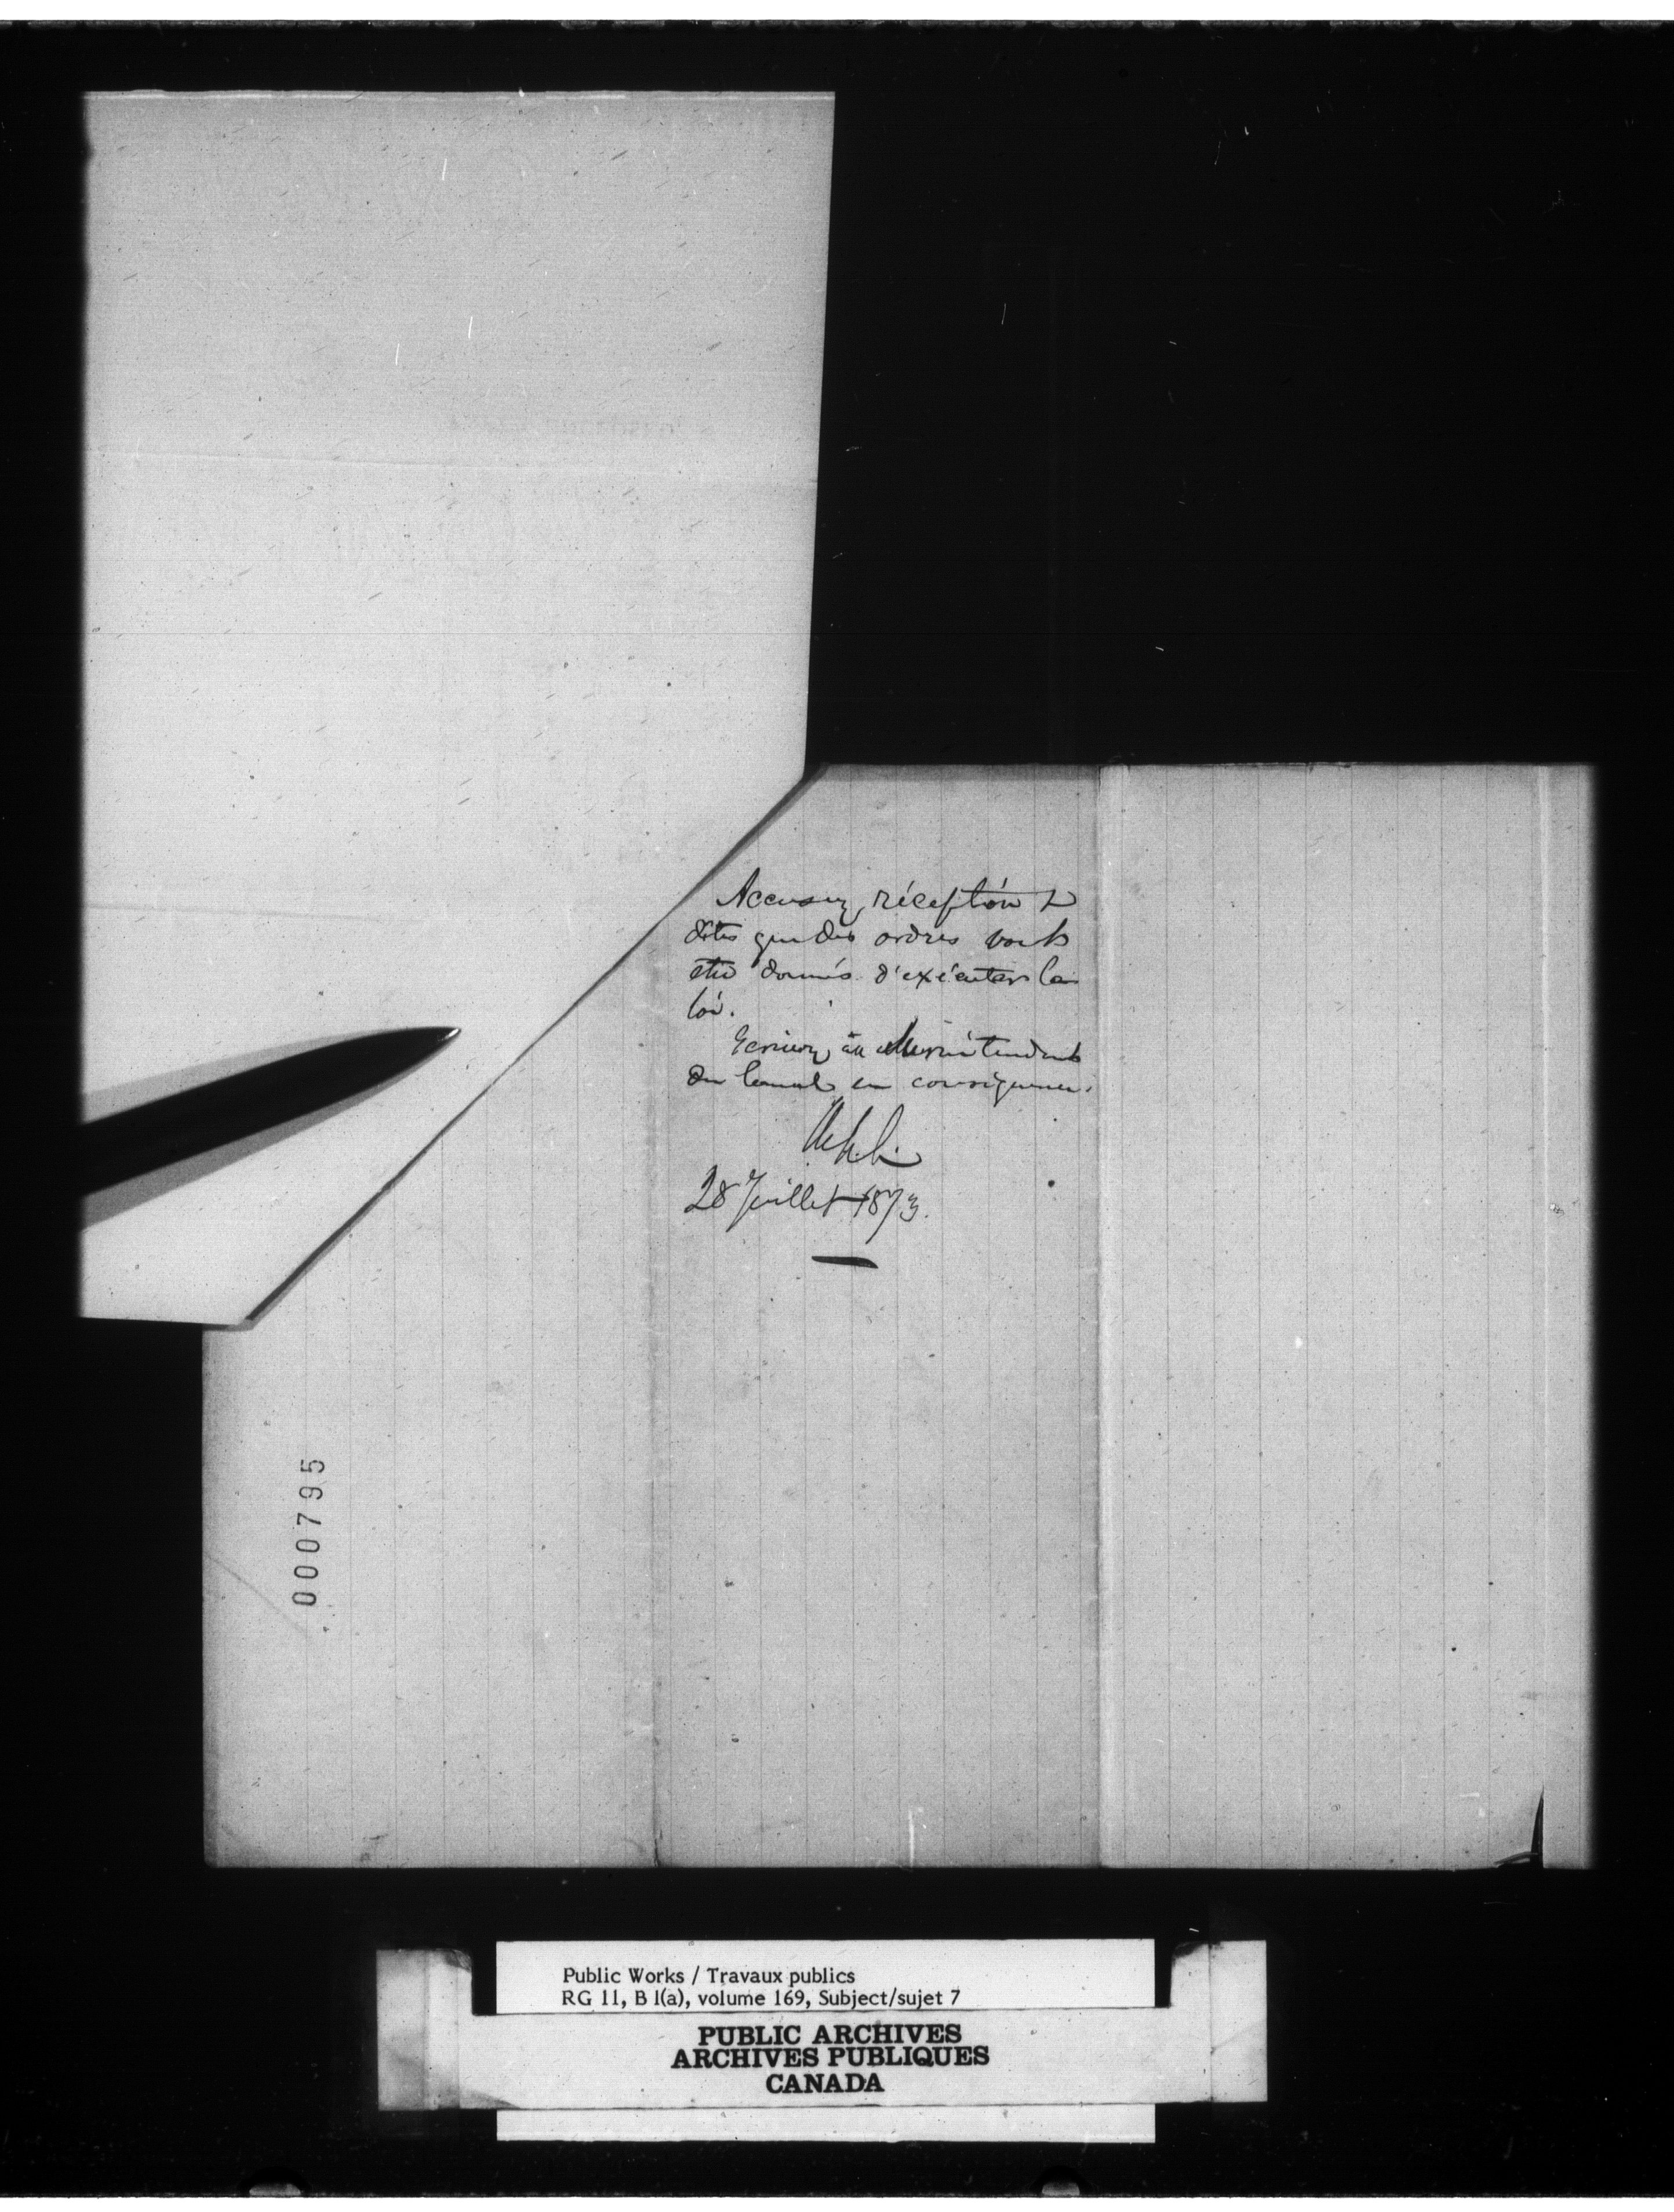 Accusez réception &
dites que des ordres vont
être donnés d'exécuter la
loi.
Ecrivez au Surintendant
du Canal en conséquence.
28 Juillet 1873.
000795
Public Works / Travaux publics
RG 11, B 1(a), volume 169, Subject/sujet 7
PUBLIC ARCHIVES
ARCHIVES PUBLIQUES
CANADA